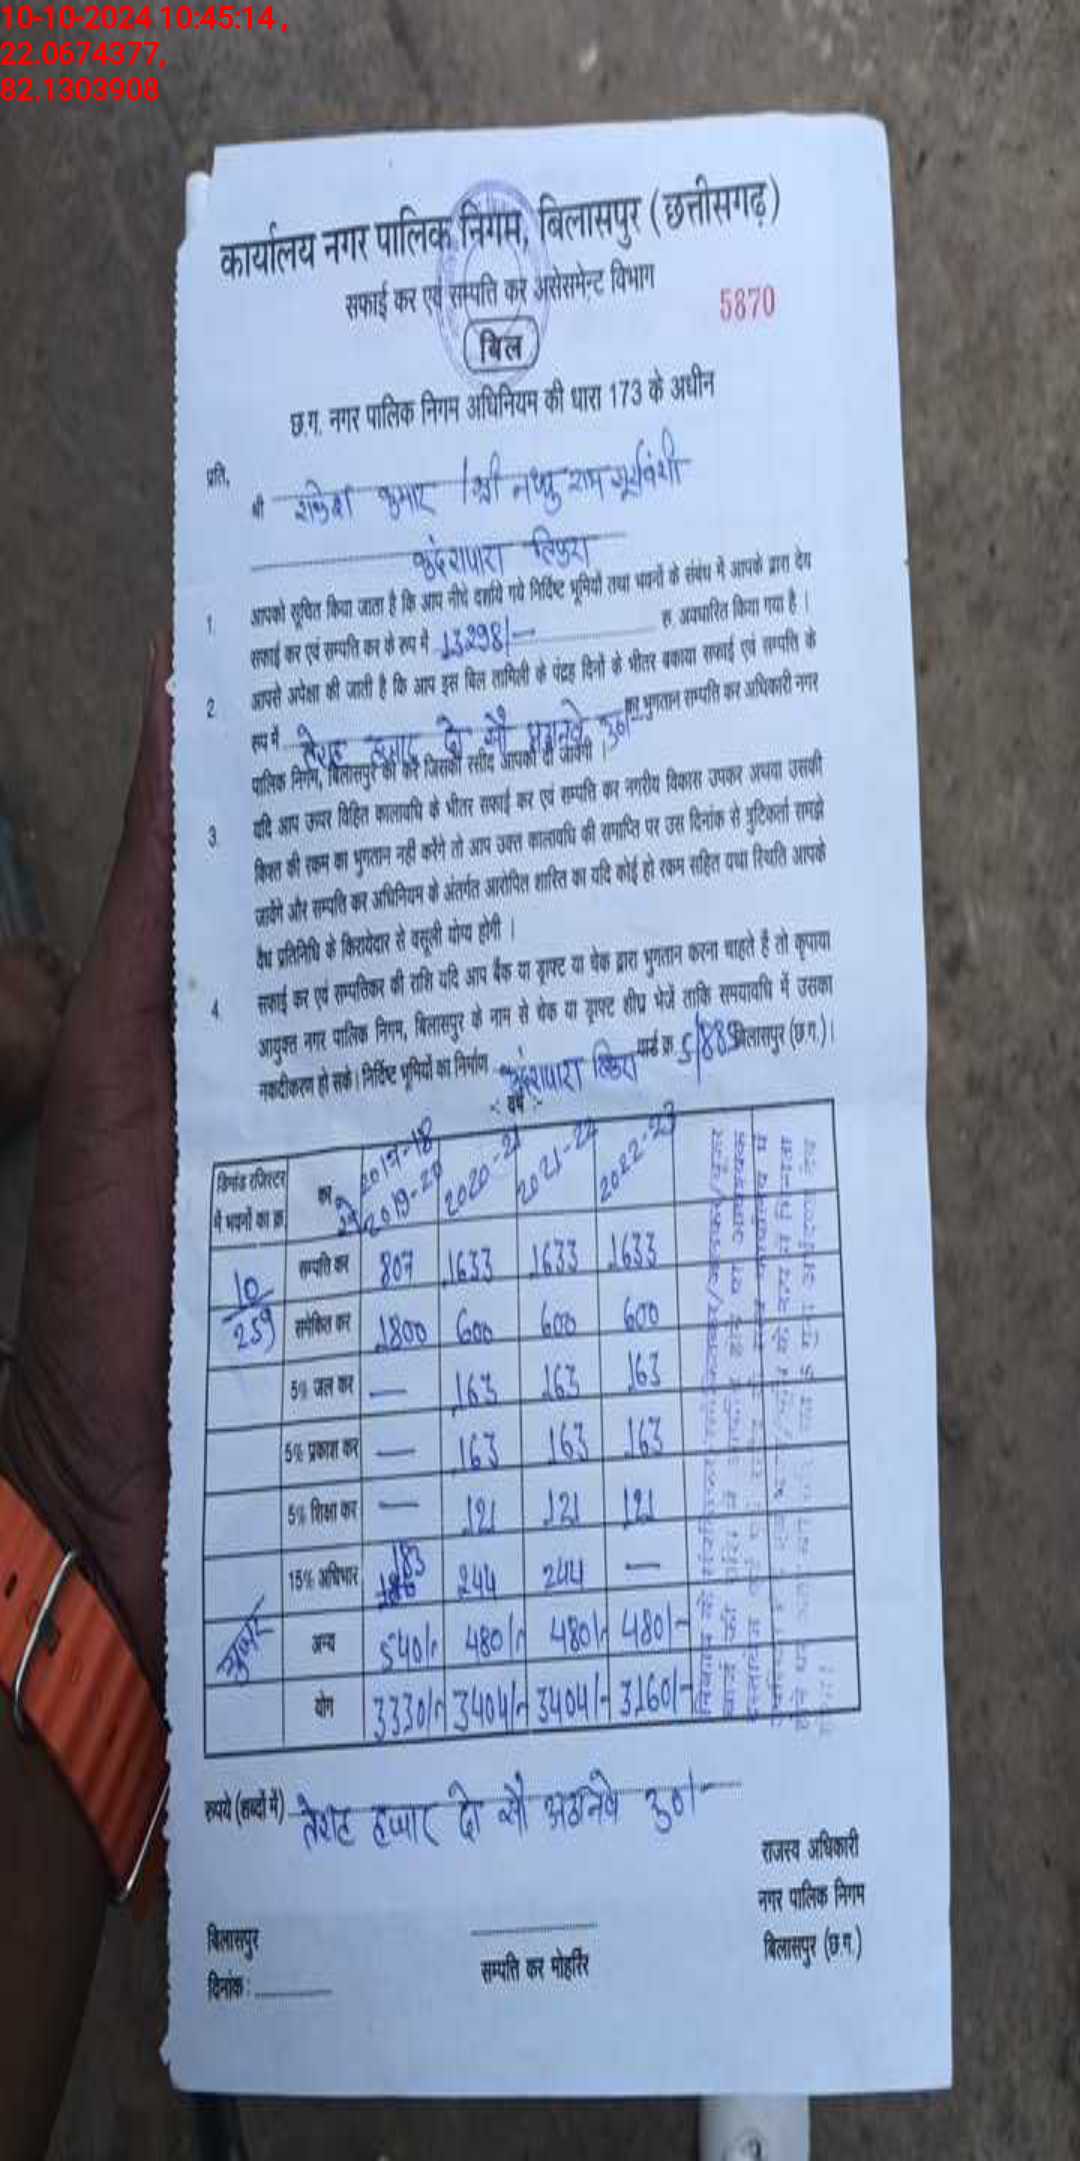 10-10-2024 10:45:14 ,
22.0674377,
82.1303908
कार्यालय नगर पालिक निगम, बिलासपुर (छत्तीसगढ़)
सफाई कर एवं सम्पति कर असेसमेन्ट विभाग
5870
बिल
छ.ग. नगर पालिक निगम अधिनियम की धारा 173 के अधीन
प्रति,
श्री राकेश कुमार / श्री नथ्थु राम सूर्यवंशी
कुंदरापारा तिफरा
1. आपको सूचित किया जाता है कि आप नीचे दर्शाये गये निर्दिष्ट भूमियों तथा भवनों के संबंध में आपके द्वारा देय
सफाई कर एवं सम्पति कर के रूप में 13298/- रु. अवधारित किया गया है।
2. आपसे अपेक्षा की जाती है कि आप इस बिल तामिली के पंद्रह दिनों के भीतर बकाया सफाई एवं सम्पति के
रूप में तेरह हजार दो सौ अठानवे रु०/- का भुगतान सम्पति कर अधिकारी नगर
पालिक निगम, बिलासपुर को करें जिसकी रसीद आपको दी जावेगी।
3. यदि आप ऊपर विहित कालावधि के भीतर सफाई कर एवं सम्पति कर नगरीय विकास उपकर अथवा उसकी
किश्त की रकम का भुगतान नही करेंगे तो आप उक्त कालावधि की समाप्ति पर उस दिनांक से त्रुटिकर्ता समझे
जावेंगे और सम्पति कर अधिनियम के अंतर्गत आरोपित शास्ति का यदि कोई हो रकम सहित यथा स्थिति आपके
वैध प्रतिनिधि के किरायेदार से वसूली योग्य होगी।
4. सफाई कर एवं सम्पतिकर की राशि यदि आप बैंक या ड्राफ्ट या चेक द्वारा भुगतान करना चाहते है तो कृपया
आयुक्त नगर पालिक निगम, बिलासपुर के नाम से चेक या ड्राफ्ट शीघ्र भेजें ताकि समयावधि में उसका
नकदीकरण हो सके। निर्दिष्ट भूमियों का निर्माण कुंदरापारा तिफरा वार्ड क्र. 5/885 बिलासपुर (छ.ग.)।
-: वर्ष :-
डिमांड रजिस्टर में भवनों का क्र. कर 2017-18 से 2019-20 2020-21 2021-22 2022-23
10/259 सम्पति कर 807 1633 1633 1633
समेकित कर 1800 600 600 600
5% जल कर — 163 163 163
5% प्रकाश कर — 163 163 163
5% शिक्षा कर — 121 121 121
15% अधिभार 183 244 244 —
अन्य 540/- 480/- 480/- 480/-
योग 3330/- 3404/- 3404/- 3160/-
रुपये (शब्दों में) तेरह हजार दो सौ अठानवे रु०/-
राजस्व अधिकारी
नगर पालिक निगम
बिलासपुर (छ.ग.)
बिलासपुर
सम्पति कर मोहर्रिर
दिनांक :